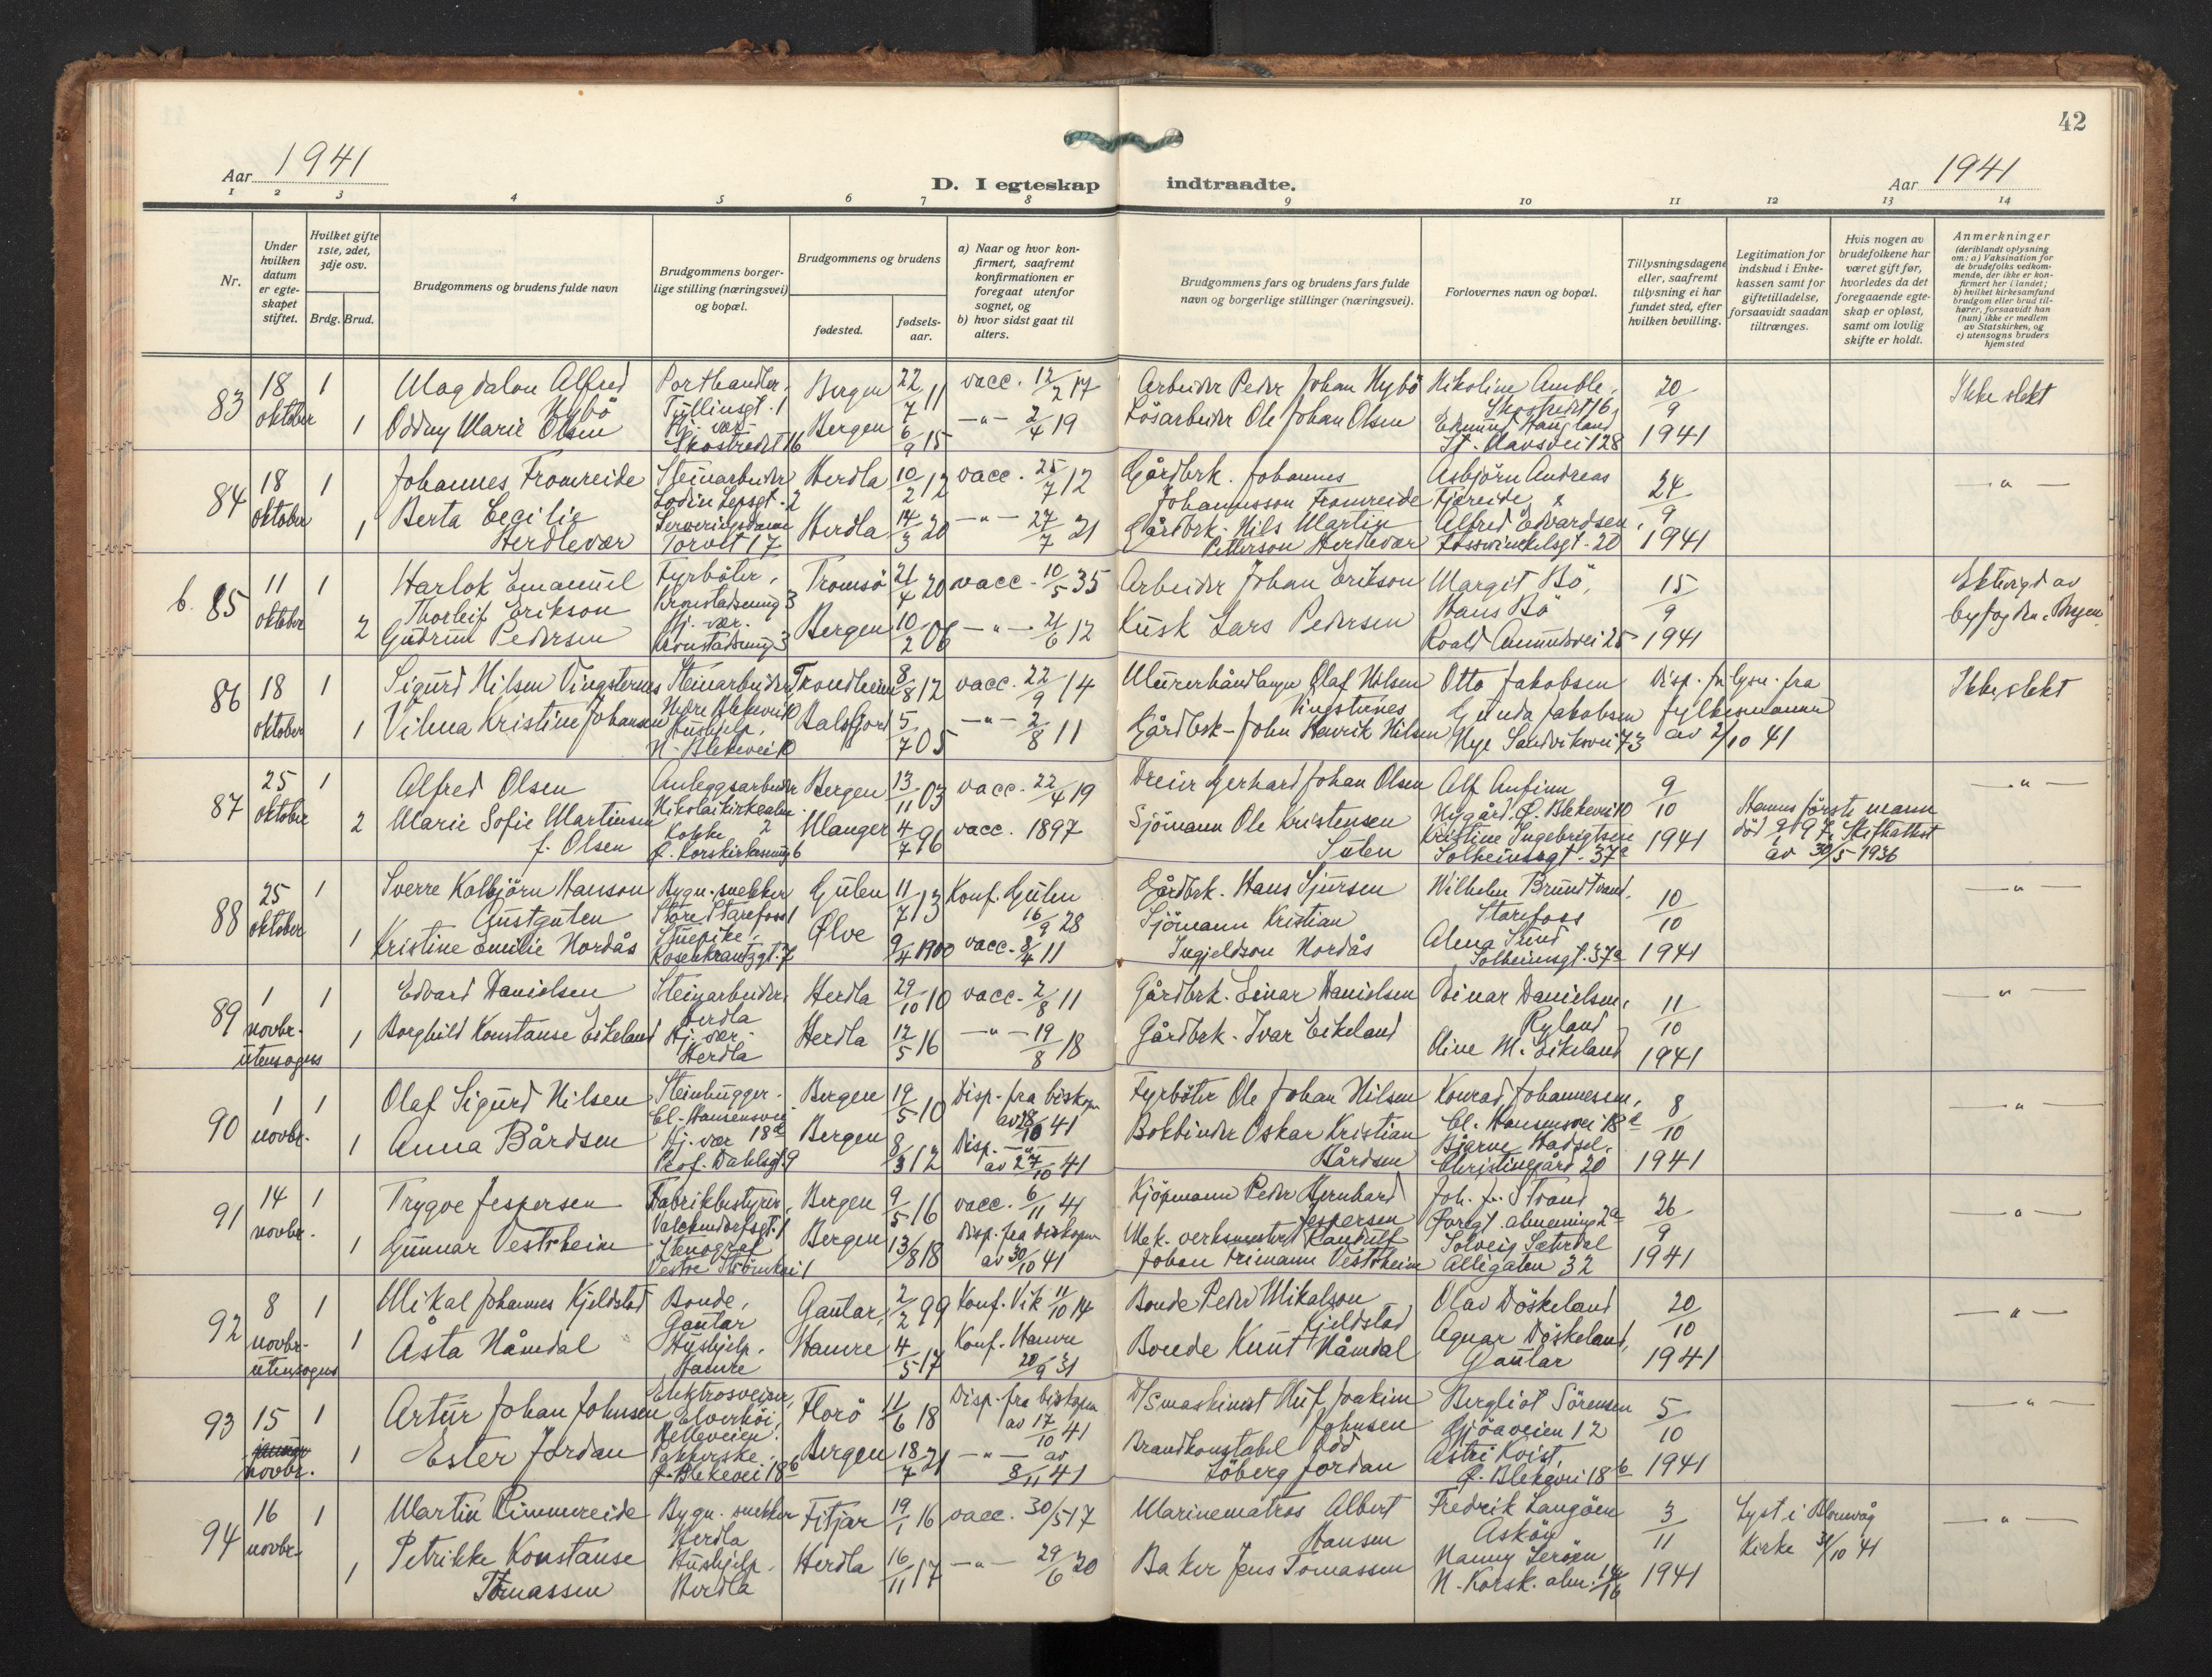 42
Aar 1941
D. I egteskap indtraadte.
Aar 1941
1 2 3 4 5 6 7 8 9 10 11 12 13 14
Nr.
Under hvilken datum er egteskapet stiftet.
Hvilket gifte 1ste, 2det, 3dje osv.
Brdg. Brud.
Brudgommens og brudens fulde navn
Brudgommens borgerlige stilling (næringsvei) og bopæl.
Brudgommens og brudens
fødested.
fødselsaar.
a) Naar og hvor konfirmert, saafremt konfirmationen er foregaat utenfor sognet, og
b) hvor sidst gaat til alters.
Brudgommens fars og brudens fars fulde navn og borgerlige stillinger (næringsvei).
Forlovernes navn og bopæl.
Tillysningsdagene eller, saafremt tillysning ei har fundet sted, efter hvilken bevilling.
Legitimation for indskud i Enkekassen samt for giftetilladelse, forsaavidt saadan tiltrænges.
Hvis nogen av brudefolkene har været gift før, hvorledes da det foregaaende egteskap er opløst, samt om lovlig skifte er holdt.
Anmerkninger
(deriblandt oplysning om: a) Vaksination for de brudefolks vedkommende, der ikke er konfirmert her i landet;
b) hvilket kirkesamfund brudgom eller brud tilhører, forsaavidt han (hun) ikke er medlem av Statskirken, og
c) utensogns bruders hjemsted
83 18 oktober 1 Magdalon Alfred Nybö Porthandler, Tullinsgt. 1 Bergen 22/7 11 vacc. 12/2 17 Arbeider Peder Johan Nybö Nikoline Amble, Skostredet 16, 20/9 1941 Ikke slekt
1 Oddny Marie Olsen Hj. vær. Skostredet 16 Bergen 6/9 15 -"- 2/4 19 Lösarbeider Ole Johan Olsen Edmund Haugland St. Olavsvei 128
84 18 oktober 1 Johannes Fromreide Steinarbeider Lodin Lepsgt. 2 Herdla 10/2 12 vacc. 25/7 12 Gårdbrk. Johannes Johannesson Fromreide Asbjörn Andreas Fjæreide & 24/9 1941 -"-
1 Berta Cecilie Herdlevær Serveringsdame Torvet 17 Herdla 14/3 20 -"- 27/7 21 Gårdbrk. Nils Martin Petterson Herdlevær Alfred Edvardsen, Fosswinckelsgt. 20
b. 85 11 oktober 1 Harlok Emanuel Thorleif Erikson Fyrböter, Kronstadsmug 3 Tromsö 21/4 20 vacc. 10/5 35 Arbeider Johan Erikson Margit Bö, 15/9 1941 Ektevigd av byfogden i Bergen
2 Gudrun Pedersen Hj. vær. Kronstadsmug 3 Bergen 10/2 06 -"- 21/6 12 Kusk Lars Pedersen Hans Bö Roald Amundsvei 25
86 18 oktober 1 Sigurd Nilsen Vingsternes Steinarbeider Nedre Blekevei 10 Trondheim 8/8 12 vacc. 22/9 14 Murerhåndlanger Olaf Nilsen Vingsternes Otto Jakobsen Disp. fr. lysn. fra fylkesmannen av 2/10 41 Ikke slekt
1 Vilma Kristine Johansen Hushjelp, N. Blekevei 10 Balsfjord 5/7 05 -"- 2/8 11 Gårdbrk. John Henrik Nilsen Gunda Jakobsen Nye Sandviksvei 73
87 25 oktober 1 Alfred Olsen Anleggsarbeider Nikolaikirkealm. 2 Bergen 13/11 03 vacc. 22/4 19 Dreier Gerhard Johan Olsen Alf Anfinn Nygård, Ø. Blekevei 10 9/10 1941 Hennes förste mann död 9/9 7 Skifteattest av 30/5 1936 -"-
2 Marie Sofie Martinsen f. Olsen Kokke Ø. Korskirkesmug 6 Manger 4/7 96 vacc. 1897 Sjömann Ole Kristensen Kristine Ingebrigtsen Solheimsgt. 37a
88 25 oktober 1 Sverre Kolbjörn Hanson Bygn. snekker Store Starefoss 1 Gulen 11/7 13 Konf. Gulen 16/9 28 Gårdbrk. Hans Sjursen Wilhelm Brundtland, Starefoss 10/10 1941 -"-
1 Kristine Emilie Nordås Stuepike, Rosenkrantzgt. 7 Ølve 9/4 1900 vacc. 8/4 11 Sjömann Kristian Ingjeldson Nordås Alma Strid Solheimsgt. 37a
89 1 novbr. utensogns 1 Edvard Danielsen Steinarbeider, Herdla Herdla 29/10 10 vacc. 2/8 11 Gårdbrk. Einar Danielsen Einar Danielsen, Ryland 11/10 1941 -"-
1 Borghild Konstanse Eikeland Hj. vær. Herdla Herdla 12/5 16 -"- 19/8 18 Gårdbrk. Ivar Eikeland Oline M. Eikeland
90 1 novbr. 1 Olaf Sigurd Nilsen Steinhugger. Cl. Hansensvei 18d Bergen 19/5 10 Disp. fra biskopen av 28/10 41 Fyrböter Ole Johan Nilsen Konrad Johannesen, Cl. Hansensvei 18d 8/10 1941 -"-
1 Anna Bårdsen Hj. vær Prof. Dahlsgt 9 Bergen 8/3 12 Disp. -"- av 27/10 41 Bokbinder Oskar Kristian Bårdsen Bjarne Hadsel. Christinegård 20
91 14 novbr. 1 Trygve Jespersen Fabrikkbestyrer, Valckendorfsgt. 1 Bergen 9/5 16 vacc. 6/11 41 Kjöpmann Peder Bernhard Jespersen Joh. fr. Strand Øvregt. almenning 2a 26/9 1941 -"-
1 Gunnar Vestrheim Stenograf Vestre Strömkai 1 Bergen 13/8 18 Disp. fra biskopen av 30/10 41 Mek. verksmester Randulf Johan Frimann Vestrheim Solveig Sæterdal Allégaten 32
92 8 novbr. utensogns 1 Mikal Johannes Kjelstad Bonde, Gaular Gaular, 2/2 99 Konf. Vik 11/10 14 Bonde Peder Mikalson Kjeldstad Olav Döskeland 20/10 1941 -"-
1 Åsta Nåmdal Hushjelp. Hamre Hamre 4/5 17 Konf. Hamre 20/9 31 Bonde Knut Nåmdal Agnar Döskeland, Gaular
93 15 novbr. 1 Artur Johan Johnsen Elektrosveiser, Elverhöi, Helleveien. Florö 11/6 18 Disp. fra biskopen av 17/10 41 D/S maskinist Oluf Joakim Johnsen Bergliot Sörensen Gjöaveien 12 5/10 1941 -"-
1 Ester Jordan Pakkerske, Ø. Blekevei 18b Bergen 18/7 21 -"- av 8/11 41 Brandkonstabel Odd Löberg Jordan Astri Kvist, Ø. Blekevei 18b
94 16 novbr. 1 Martin Rimmereide Bygn. snekker Herdla Fitjar 19/1 16 vacc. 30/5 17 Marinematros Albert Hansen Fredrik Langöen Asköy 3/11 1941 Lyst i Blomvåg Kirke 31/10 41 -"-
1 Petrikke Konstanse Tomassen Hushjelp. Herdla Herdla 16/11 17 -"- 29/6 20 Baker Jens Tomassen Nanny Leröen N. Korsk. alm. 14/16